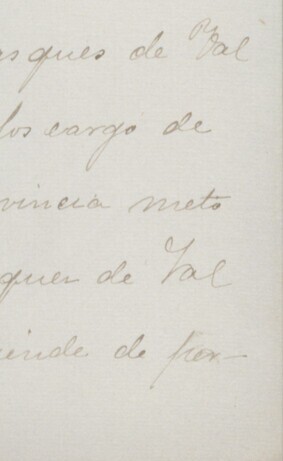 asques de Val
los cargo de
vincia meto
quer de Val
iende de por-